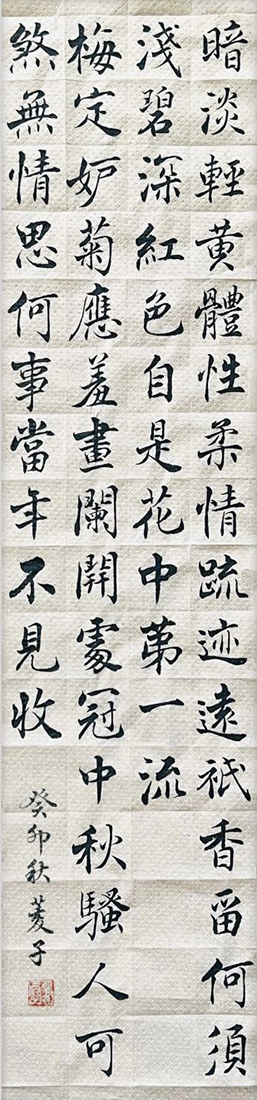 暗淡輕黃體性柔情疏迹遠祇香留何須
淺碧深紅色自是花中第一流
梅定妒菊應羞畫闌開處冠中秋騷人可
煞無情思何事當年不見收
癸卯秋菱子